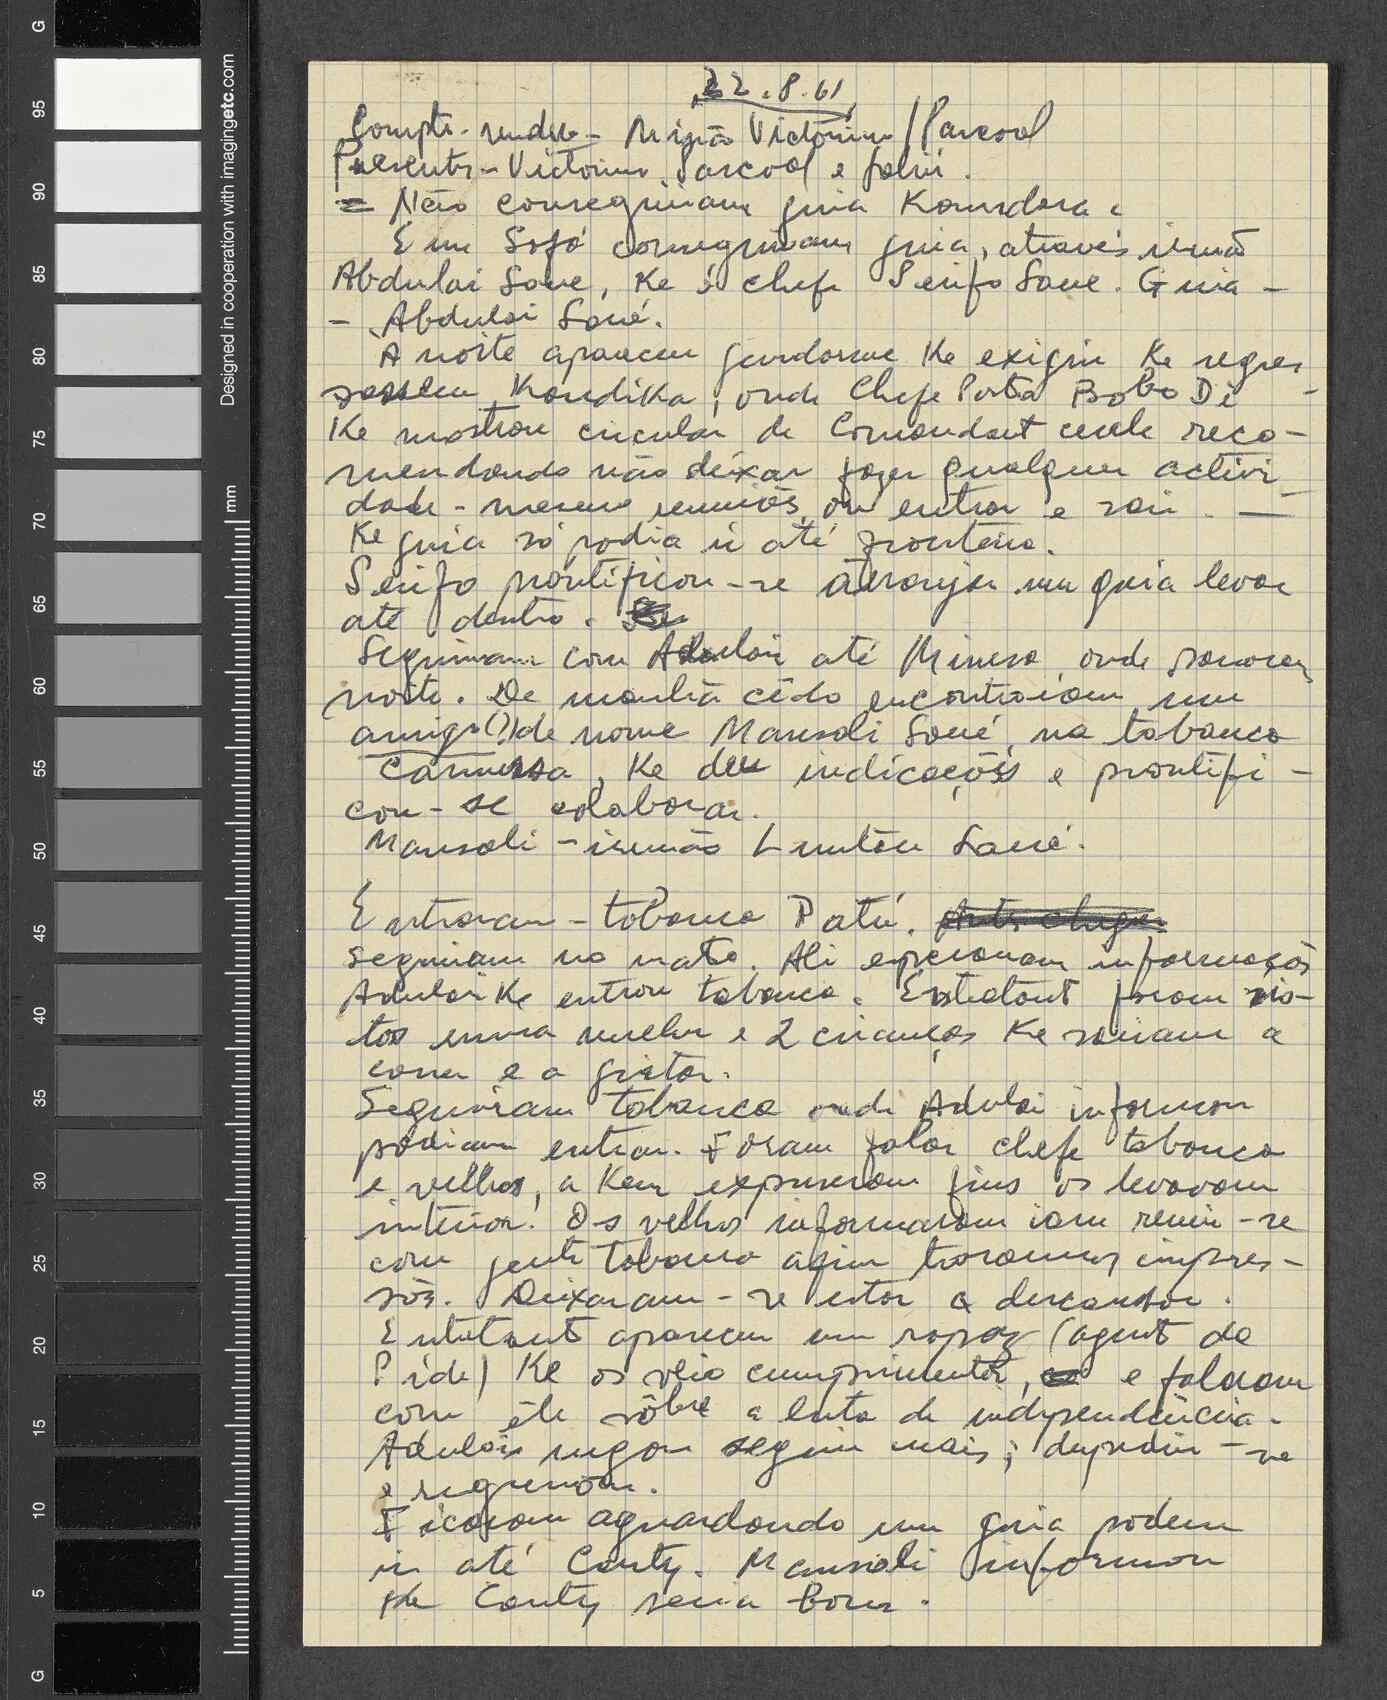 22.8.61
Compte-rendu - Missão Victorino/Pascoal
Presents - Victorino, Pascoal e
= Não conseguiram guia Koundara.
Em conseguiram guia, através irmão
Abdulai Sane, Ke é chefe Serifo Sane. Guia -
- Abdulai Sané.
À noite apareceu gendarme Ke exigiu Ke regres
sassem Koundika, onde Chefe Posto Bobo Di -
Ke mostrou circular de Comandant cercle reco-
mendando não deixar fazer qualquer activi
dade - mesmo reuniões, ou entrar e sair. -
Ke guia só podia ir até fronteira.
Serifo prontificou-se arranjar um guia levar
até dentro.
Seguiram com Adulai até onde passaram
noite. De manhã cêdo encontraram um
amigo(?) de nome Mansali Sané, na tabanca
, Ke deu indicações e prontifi-
cou-se colaborar.
Mansali - irmão Sané.
Entraram - tabanca Patú.
seguiram no mato. Ali esperavam informações
Adulai Ke entrou tabanca. Entretant foram vis-
tos numa mulher e 2 crianças Ke saíram a
correr e a gritar.
Seguiram tabanca onde Adulai informou
podiam entrar. Foram falar chefe tabanca
e velhos, a Kem expuseram fins os levavam
interior. Os velhos informaram iam reunir-se
com gente tabanca afim trocarmos impres-
sões. Deixaram-se estar a descansar.
Entretant apareceu um rapaz (agent da
Pide) Ke os veio cumprimentar, e falaram
com êle sôbre a luta de independência.
Adulai negou seguir mais; despediu-se
e regressou.
Ficaram aguardando um guia podem
ir até Canty. Mansali informou
Ke Canty seria bom.
Designed in cooperation with imagingetc.com
mm
G
95
90
85
80
75
70
65
60
55
50
45
40
35
30
25
20
15
10
5
G